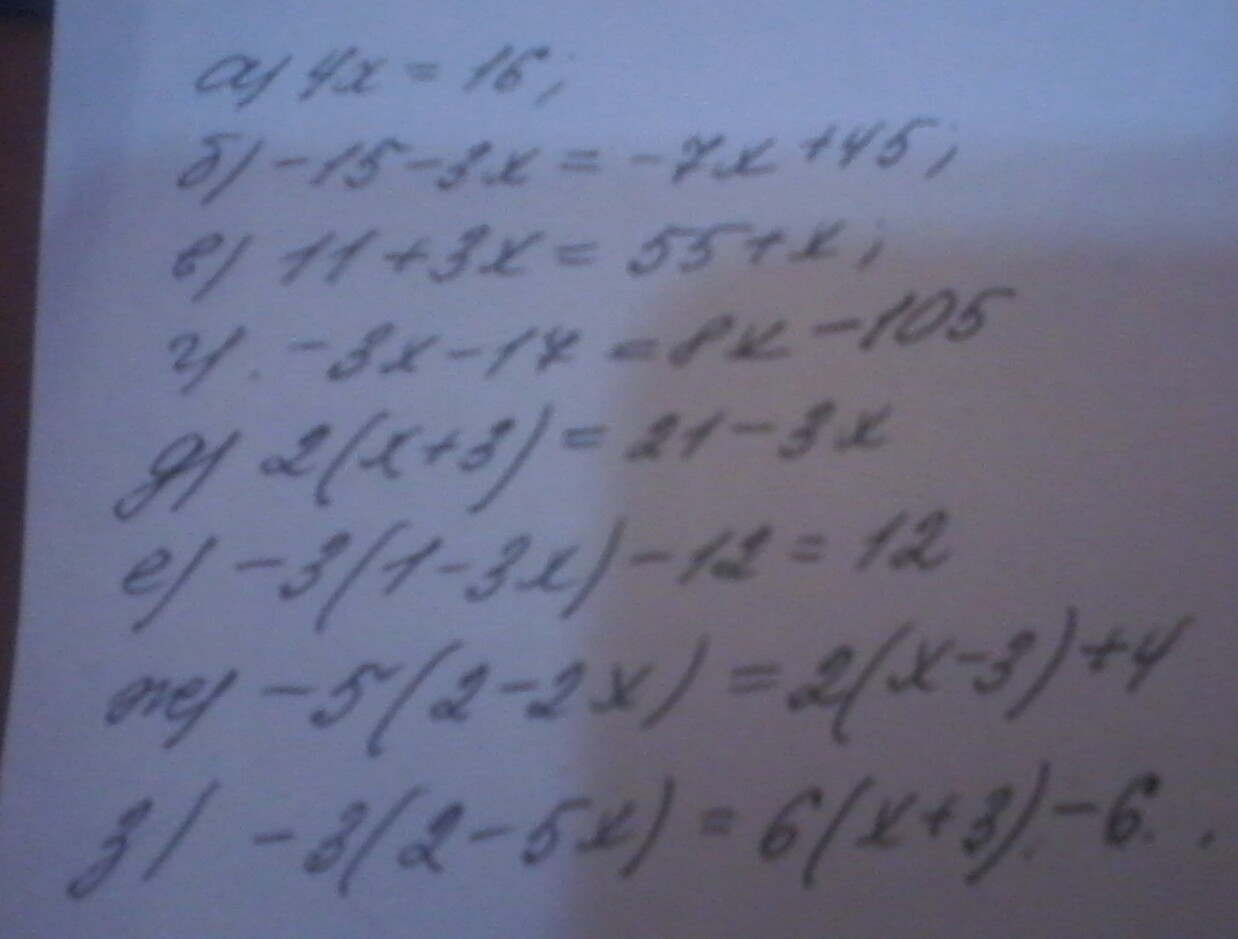 а) 4x = 16;
б) -15-3x = -7x +45;
в) 11+3x = 55+x;
г). -3x-17 = 8x -105
д) 2(x+3) = 21-3x
е) -3(1-3x)-12 = 12
ж) -5(2-2x) = 2(x-3)+4
з) -3(2-5x) = 6(x+3)-6.